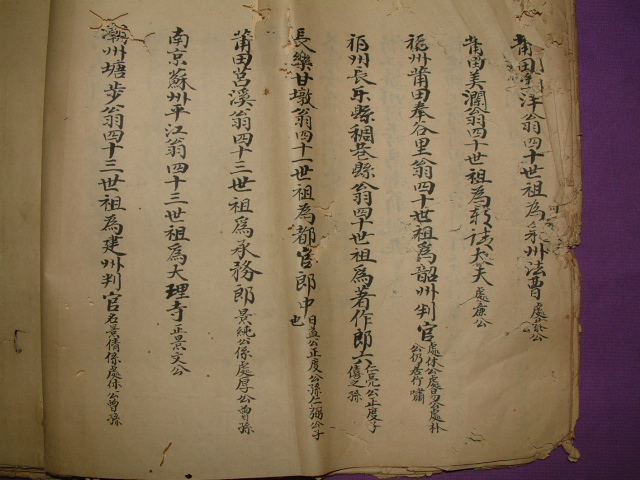 莆田洋翁四十世祖為泉州法曹
莆田美瀾翁四十世祖為朝議大夫處廉公
福州莆田奉谷里翁四十世祖爲韶州判官處休公處易公處朴公仍居竹嘯
福州長乐縣稠巷縣翁四十世祖爲著作郎六仁亮公正度子僖之孫
長樂甘墩翁四十一世祖為都官郎中也日益公正度公孫仁弼公子
莆田莒溪翁四十三世祖爲承務郎景純公係處厚公曾孫
南京蘇州平江翁四十三世祖爲大理寺正景文公
潮州塘步翁四十三世祖為建州判官名景倩係處休公曾孫